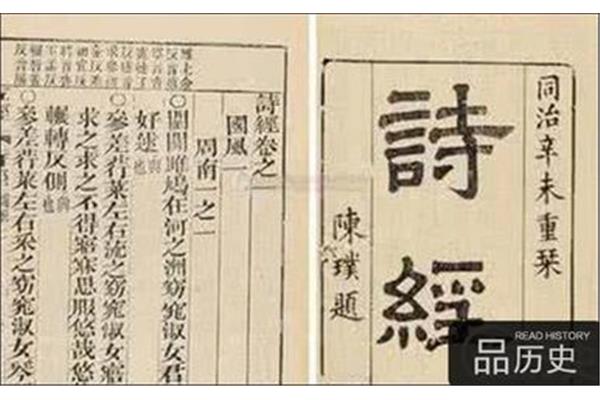 同治辛未重栞
詩經
陳璞題
詩經卷之
國風一
周南一之一
〇關關雎鳩在河之洲窈窕淑女君
好逑興也
〇參差荇菜左右流之窈窕淑女寤
求之求之不得寤寐思服悠哉悠
輾轉反側興也
〇參差荇菜左右采之窈窕淑女琴
READ HISTORY
品历史